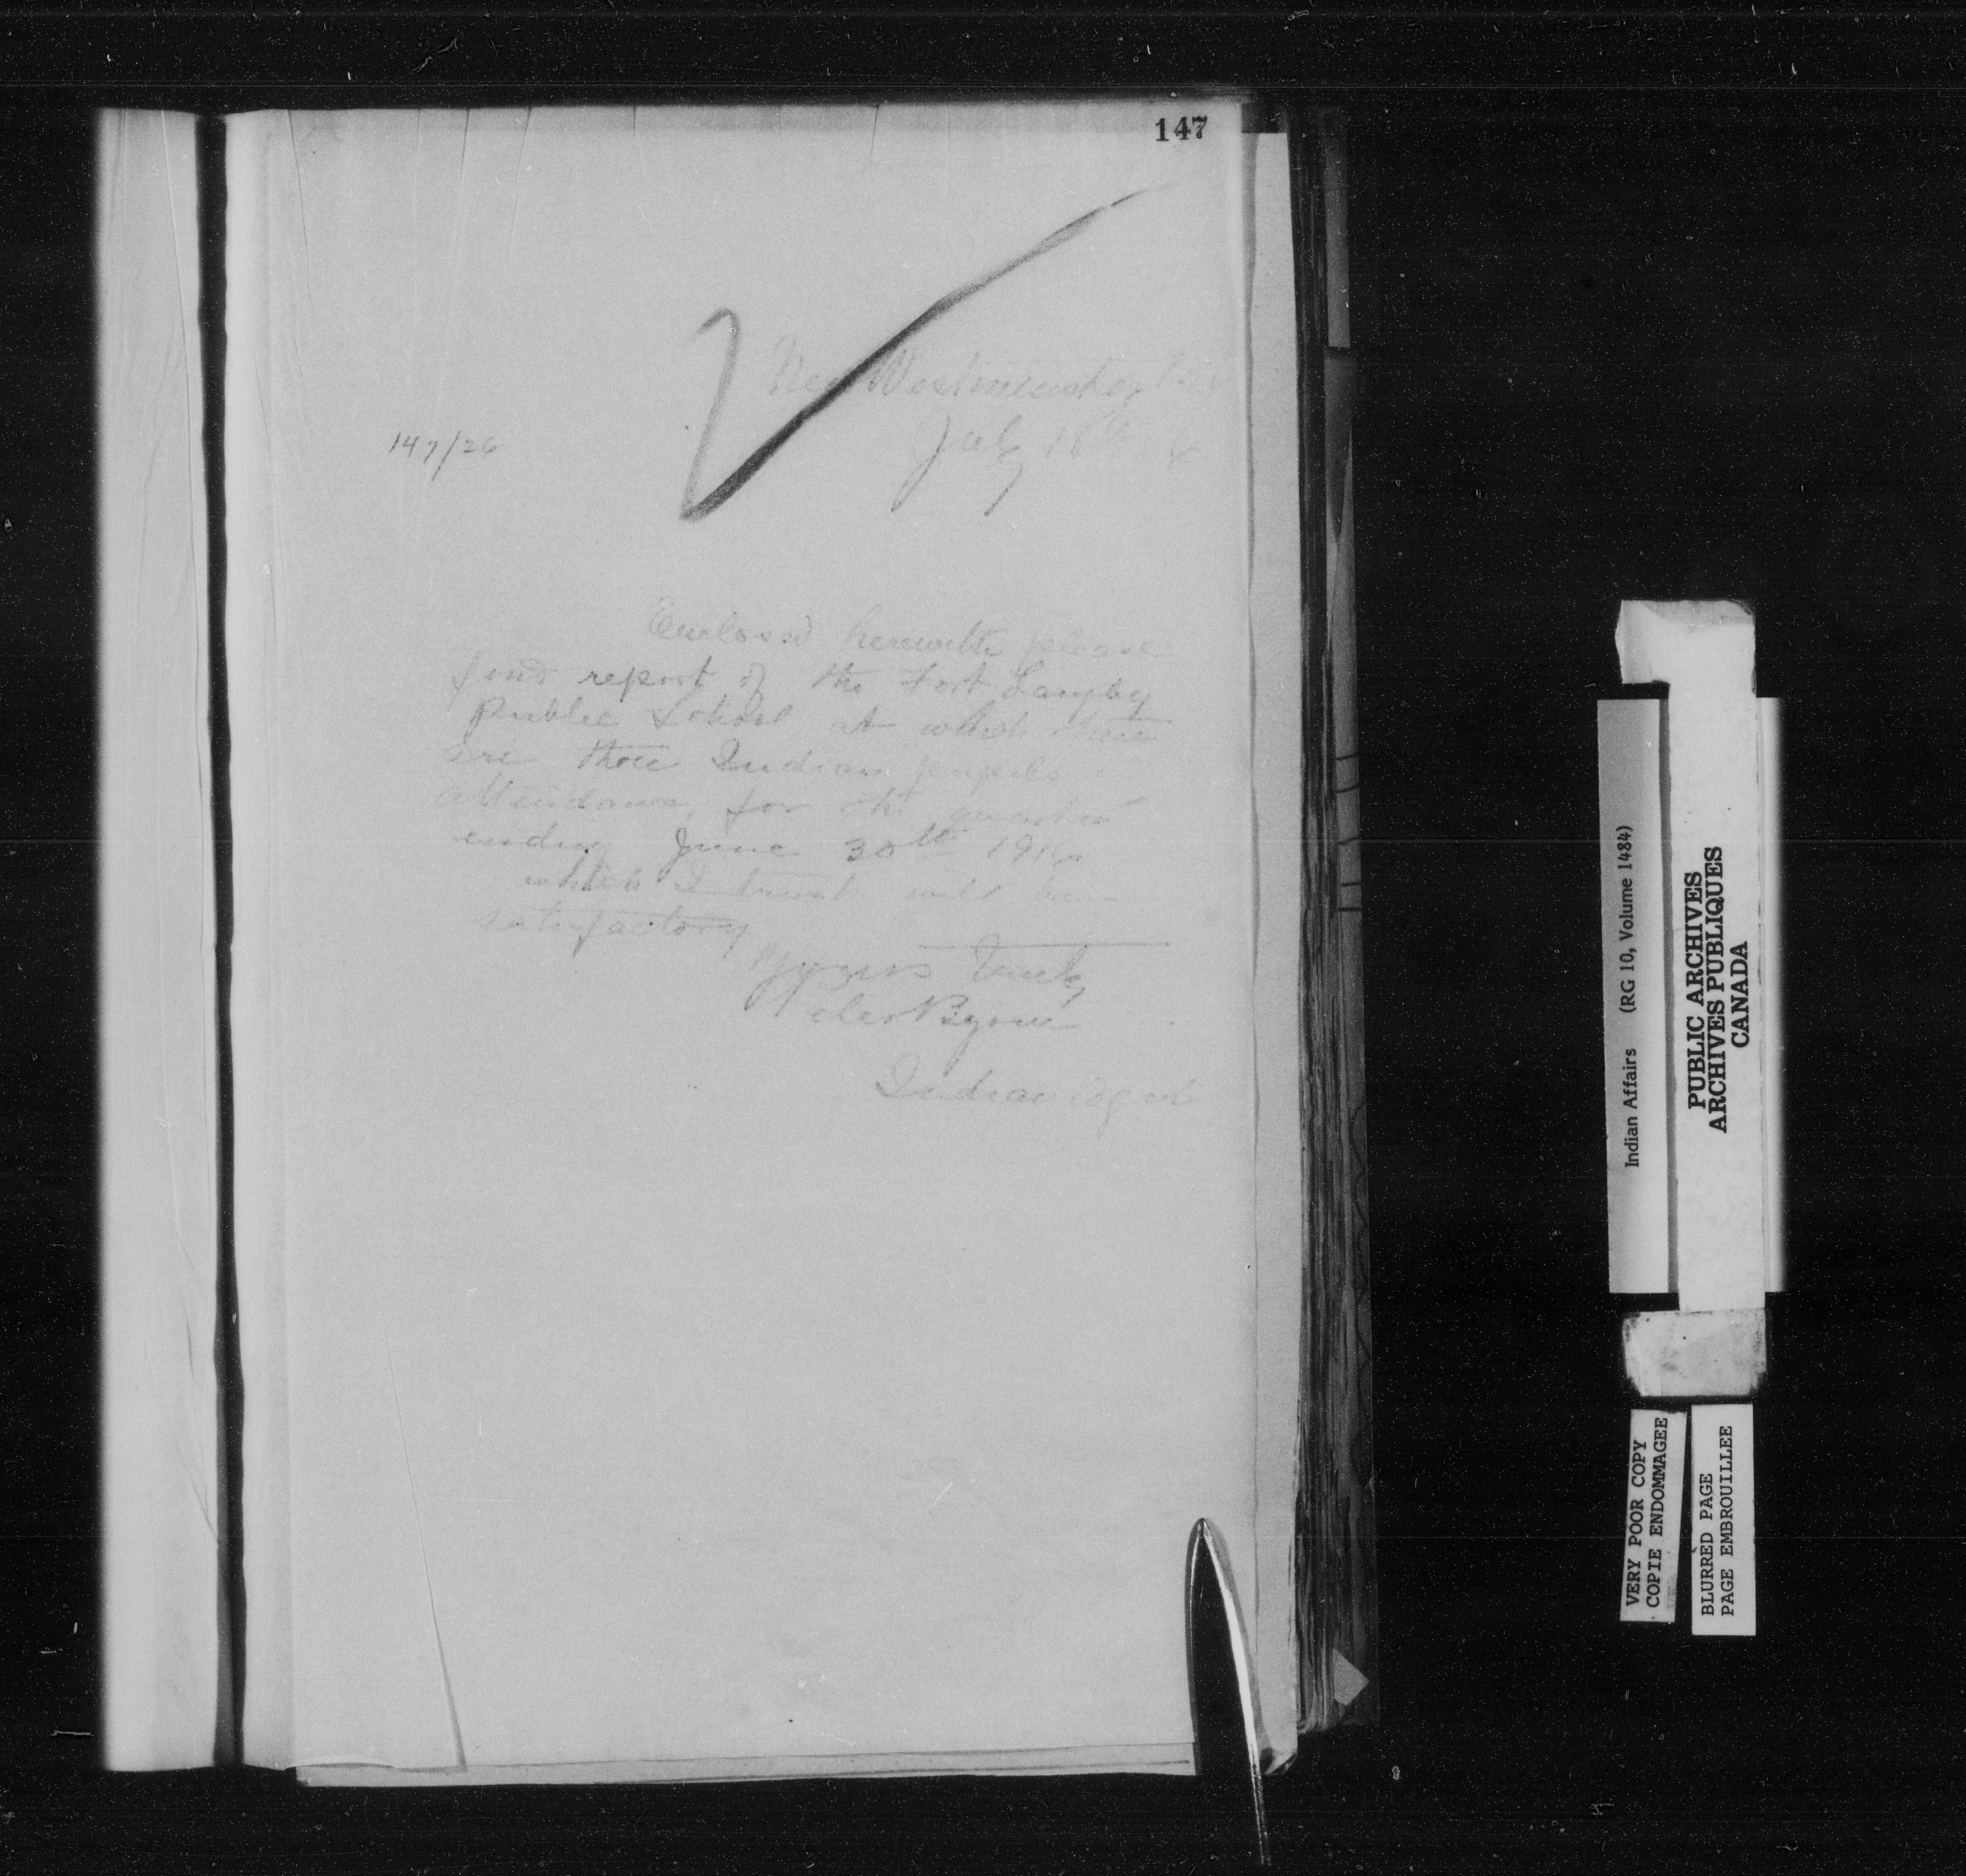 147
New Westminster B.C.
July 18th 6
147/26
Enclosed herewith please
find report of the Fort Langley
Public School at which there
are three Indian pupils in
attendance, for the quarter
ending June 30th 1916
which I trust will be
satisfactory
Yours Truly
Peter Byrne
Indian Agent
Indian Affairs (RG 10, Volume 1484)
PUBLIC ARCHIVES
ARCHIVES PUBLIQUES
CANADA
VERY POOR COPY
COPIE ENDOMMAGEE
BLURRED PAGE
PAGE EMBROUILLEE